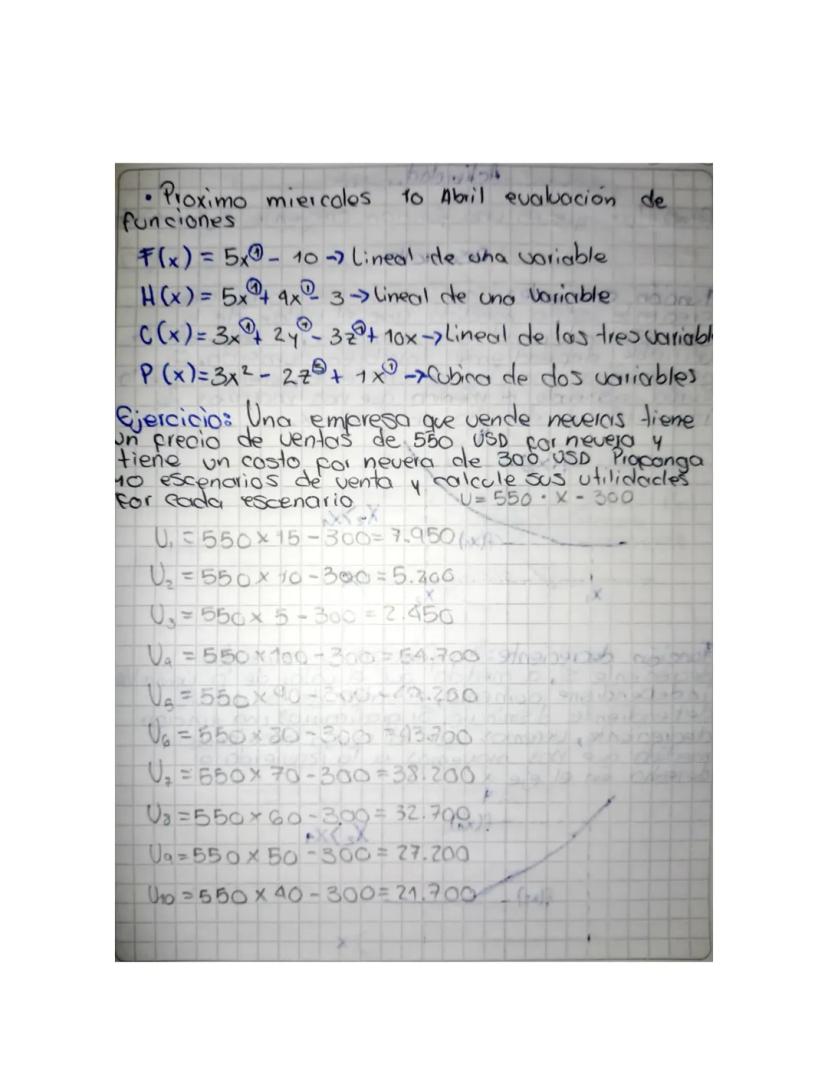 • Proximo miercoles 10 Abril evaluación de
funciones
F(x) = 5x① - 10 → Lineal de una variable
H(x) = 5x① + 4x① - 3 → lineal de una variable
C(x) = 3x① + 2y① - 3z① + 10x → Lineal de las tres variabl
P(x) = 3x² - 2z③ + 1x① → Cubica de dos variables
Ejercicio: Una empresa que vende neveras tiene
un precio de ventas de 550 USD por nevera y
tiene un costo por nevera de 300 USD Proponga
10 escenarios de venta y calcule sus utilidades
por cada escenario U = 550 · x - 300
U₁ = 550 x 15 - 300 = 7.950
U₂ = 550 x 10 - 300 = 5.200
U₃ = 550 x 5 - 300 = 2.450
U₄ = 550 x 100 - 300 = 54.700
U₅ = 550 x 90 - 300 = 49.200
U₆ = 550 x 80 - 300 = 43.700
U₇ = 550 x 70 - 300 = 38.200
U₈ = 550 x 60 - 300 = 32.700
U₉ = 550 x 50 - 300 = 27.200
U₁₀ = 550 x 40 - 300 = 21.700